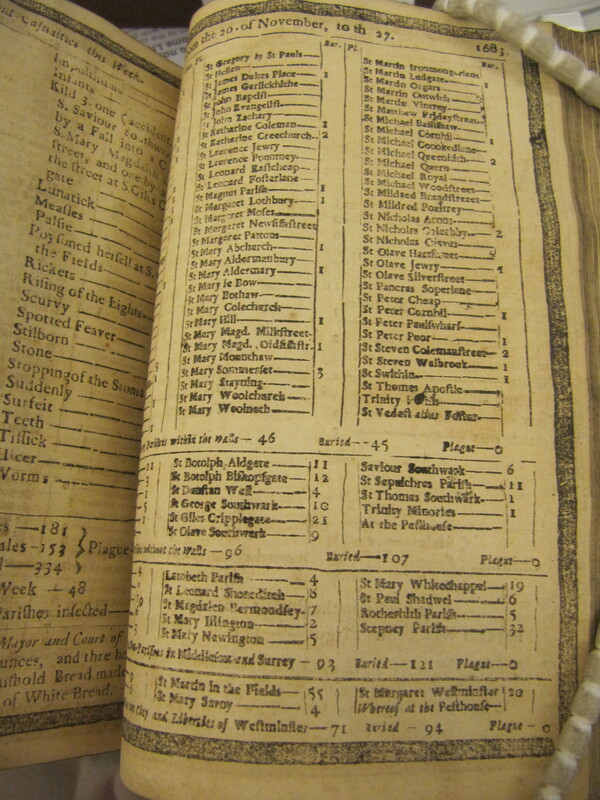 Casualties this Week.
Impostume
Infants
Kild 3. one (accidentally
S. Saviour
by a Fall into
S. Mary Magdal
street, and one by
the street at S. Giles C
gate
Lunatick
Measles
Palsie
Poysoned herself at S.
the Fields
Rickets
Rising of the Lights
Scurvy
Spotted Feaver
Stilborn
Stone
Stopping of the Stoma
Suddenly
Surfeit
Teeth
Tissick
Ulcer
Worms
181
ales-153 Plague
334
Week — 48
Parishes infected
Mayor and Court of
ounces, and three ha
ushold Bread made
of White Bread.
the 20. of November, to th 27. 1683.
Bur. Pl. Bur.
St Gregory by St Pauls
St Hellen
St James Dukes Place 1
St James Garlickhithe
St John Baptist
St John Evangelist
St John Zachary
St Katharine Coleman 1
St Katharine Creechurch 2
St Laurence Jewry
St Laurence Pountney
St Leonard Eastcheap
St Leonard Fosterlane
St Magnus Parish 1
St Margaret Lothbury 1
St Margaret Moses
St Margaret Newfishstreet
St Margaret Pattons
St Mary Abchurch 1
St Mary Aldermanbury
St Mary Aldermary 1
St Mary le Bow
St Mary Bothaw
St Mary Colechurch
St Mary Hill 1
St Mary Magd. Milkstreet
St Mary Magd. Oldfishstr. 1
St Mary Mounthaw
St Mary Sommerset 3
St Mary Stayning
St Mary Woolchurch
St Mary Woolnoth
St Martin Ironmongerlane
St Martin Ludgate
St Martin Orgars
St Martin Outwich
St Martin Vintrey
St Matthew Fridaystreet
St Michael Bassishaw
St Michael Cornhil 1
St Michael Crookedlane
St Michael Queenhith 2
St Michael Quern
St Michael Royal
St Michael Woodstreet
St Mildred Breadstreet
St Mildred Poultrey
St Nicholas Acons
St Nicholas Coleabby 2
St Nicholas Olaves
St Olave Hartstreet
St Olave Jewry 4
St Olave Silverstreet
St Pancras Soperlane
St Peter Cheap
St Peter Cornhil 1
St Peter Paulswharf
St Peter Poor 1
St Steven Colemanstreet 2
St Steven Walbrook 1
St Swithin 1
St Thomas Apostle
Trinity
St Vedast alias Foster
Parishes within the Walls — 46 Buried — 45 Plague — 0
St Botolph Aldgate 11
St Botolph Bishopsgate 12
St Dunstan West 4
St George Southwark 10
St Giles Cripplegate 21
St Olave Southwark 9
Saviour Southwark 6
St Sepulchres Parish 11
St Thomas Southwark 1
Trinity Minories 1
At the Pesthouse
without the Walls — 96 Buried — 107 Plague — 0
Lambeth Parish 4
St Leonard Shoreditch 8
St Magdalen Bermondsey 7
St Mary Islington 2
St Mary Newington 5
St Mary Whitechappel 19
St Paul Shadwel 6
Rotherhith Parish 5
Stepney Parish 32
Parishes in Middlesex and Surrey — 93 Buried — 121 Plague — 0
St Martin in the Fields 55
St Mary Savoy 4
St Margaret Westminster 20
Whereof at the Pesthouse
City and Liberties of Westminster — 71 Buried — 94 Plague — 0